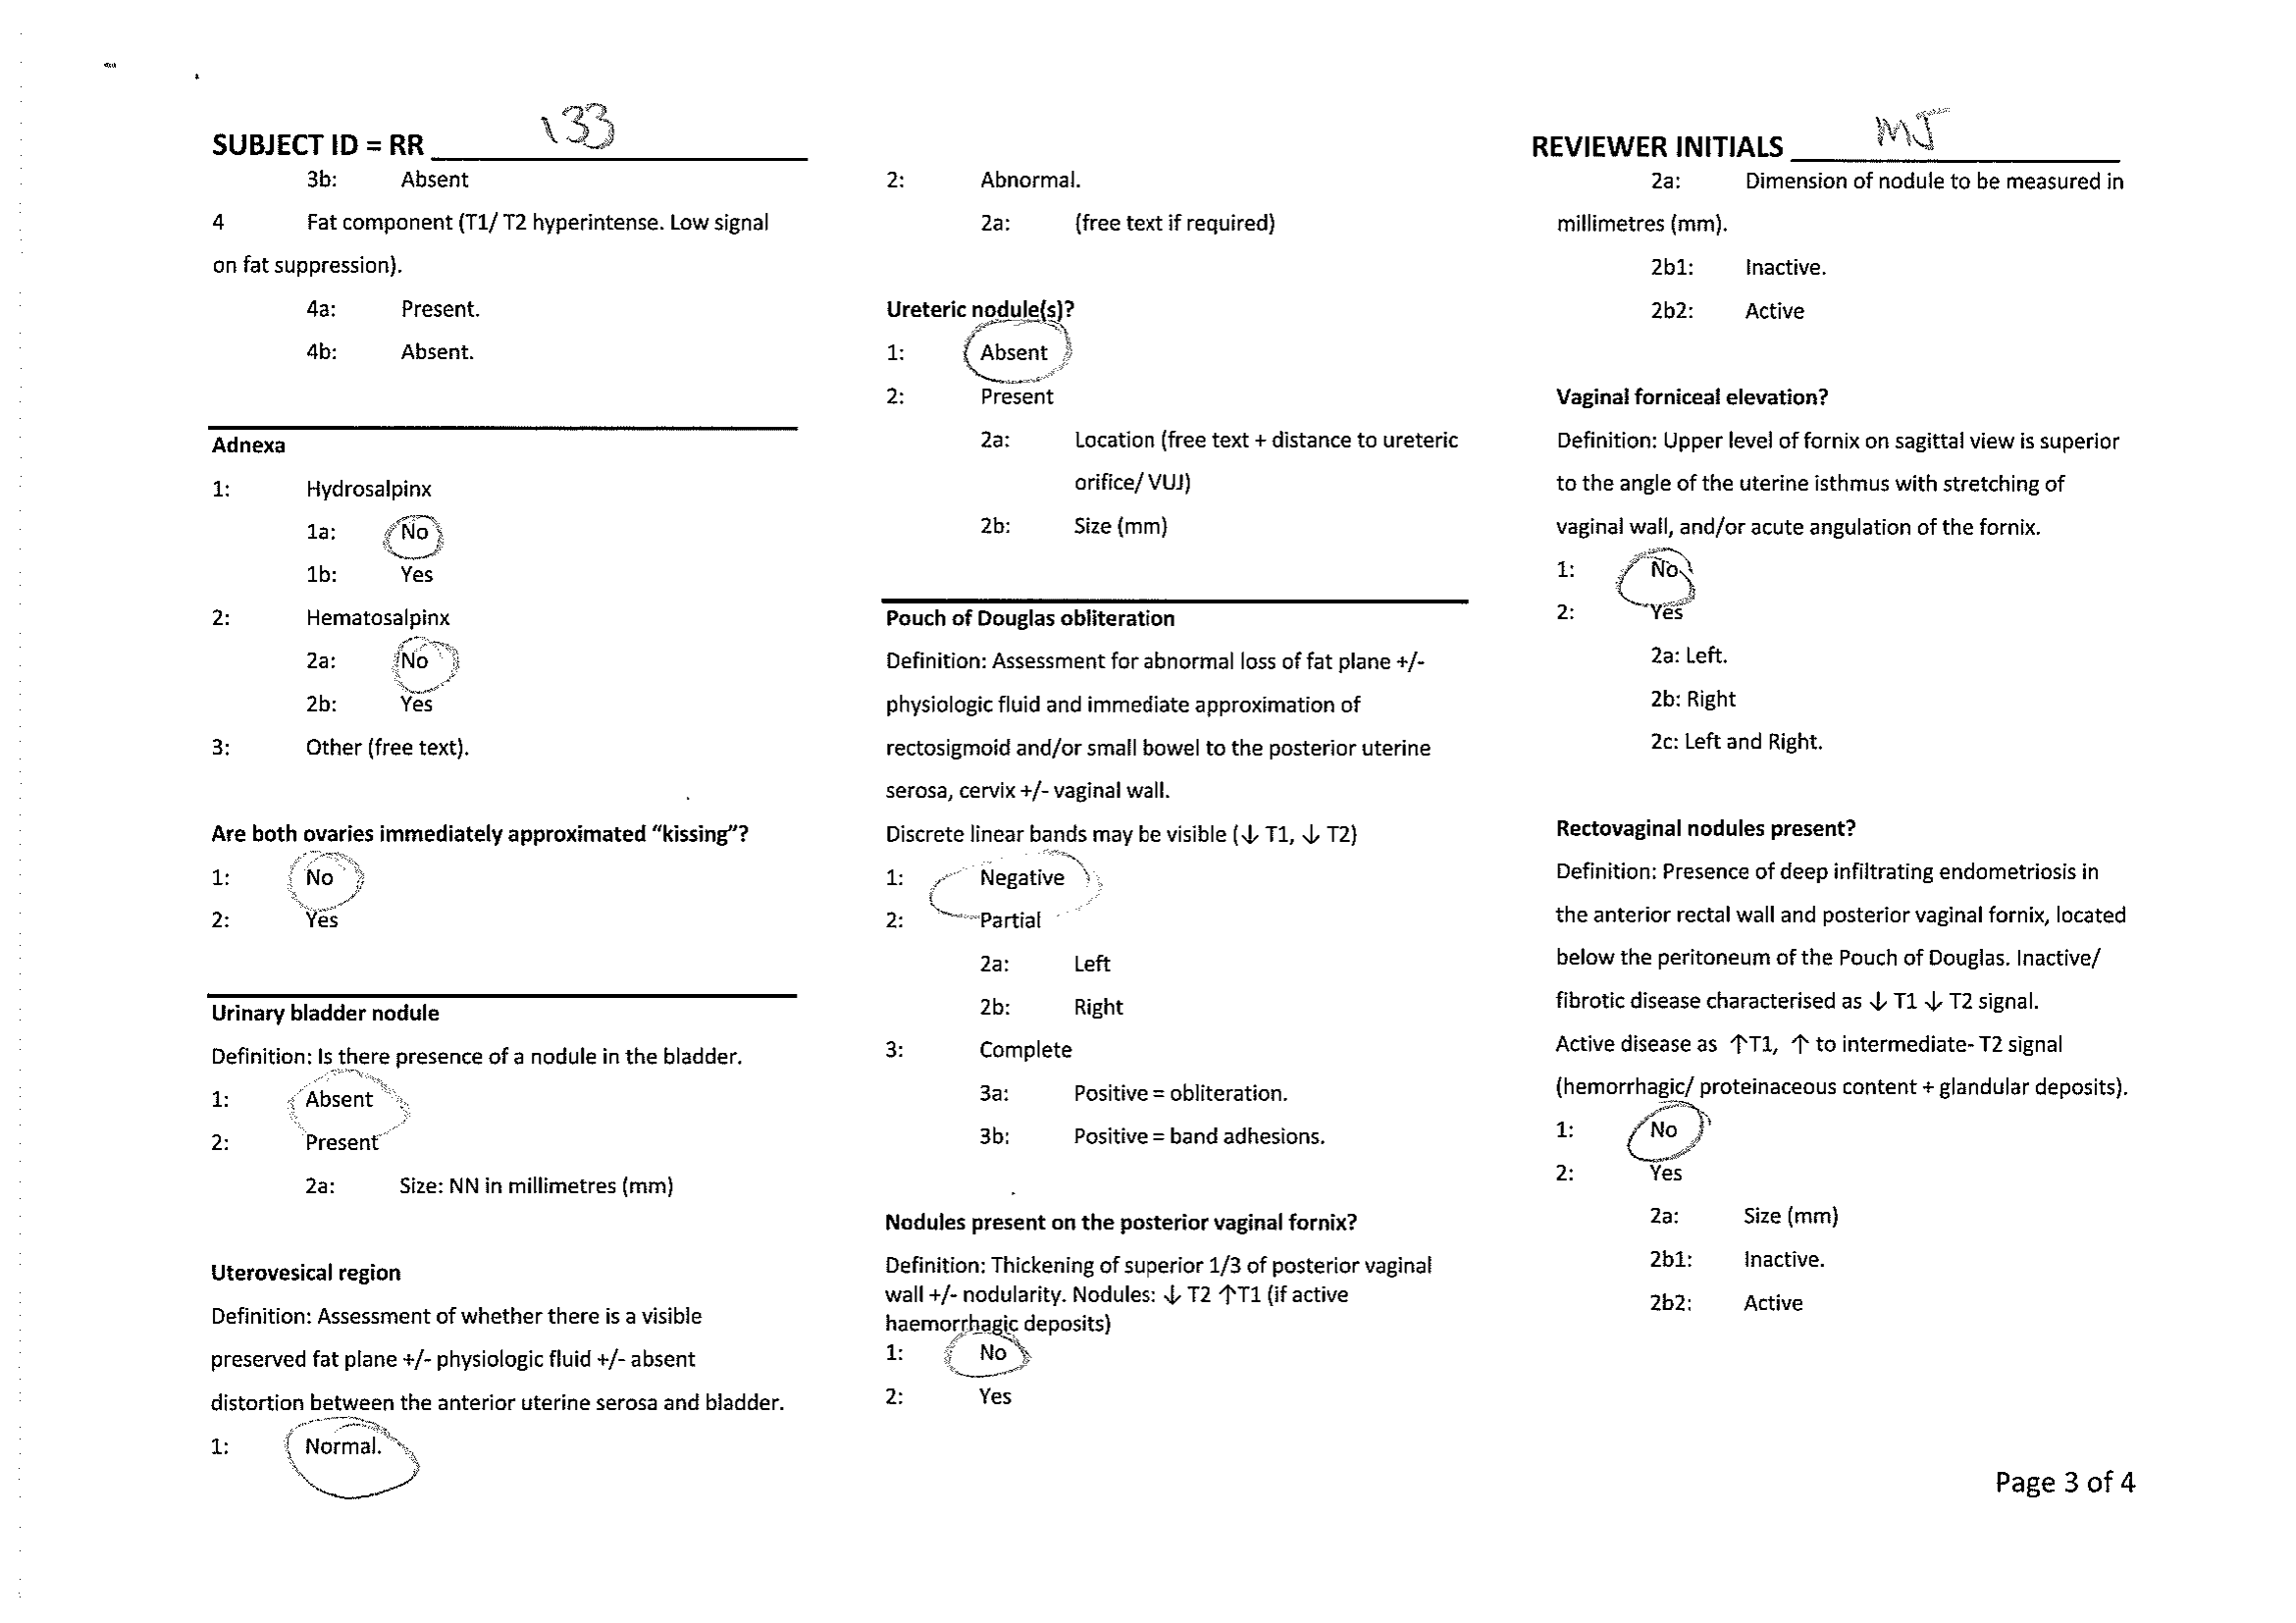 SUBJECT ID = RR 133
3b: Absent
4 Fat component (T1/ T2 hyperintense. Low signal
on fat suppression).
4a: Present.
4b: Absent.
Adnexa
1: Hydrosalpinx
1a: No
1b: Yes
2: Hematosalpinx
2a: No
2b: Yes
3: Other (free text).
Are both ovaries immediately approximated “kissing”?
1: No
2: Yes
Urinary bladder nodule
Definition: Is there presence of a nodule in the bladder.
1: Absent
2: Present
2a: Size: NN in millimetres (mm)
Uterovesical region
Definition: Assessment of whether there is a visible
preserved fat plane +/- physiologic fluid +/- absent
distortion between the anterior uterine serosa and bladder.
1: Normal.
2: Abnormal.
2a: (free text if required)
Ureteric nodule(s)?
1: Absent
2: Present
2a: Location (free text + distance to ureteric
orifice/ VUJ)
2b: Size (mm)
Pouch of Douglas obliteration
Definition: Assessment for abnormal loss of fat plane +/-
physiologic fluid and immediate approximation of
rectosigmoid and/or small bowel to the posterior uterine
serosa, cervix +/- vaginal wall.
Discrete linear bands may be visible (↓ T1, ↓ T2)
1: Negative
2: Partial
2a: Left
2b: Right
3: Complete
3a: Positive = obliteration.
3b: Positive = band adhesions.
Nodules present on the posterior vaginal fornix?
Definition: Thickening of superior 1/3 of posterior vaginal
wall +/- nodularity. Nodules: ↓ T2 ↑T1 (if active
haemorrhagic deposits)
1: No
2: Yes
REVIEWER INITIALS MJ
2a: Dimension of nodule to be measured in
millimetres (mm).
2b1: Inactive.
2b2: Active
Vaginal forniceal elevation?
Definition: Upper level of fornix on sagittal view is superior
to the angle of the uterine isthmus with stretching of
vaginal wall, and/or acute angulation of the fornix.
1: No
2: Yes
2a: Left.
2b: Right
2c: Left and Right.
Rectovaginal nodules present?
Definition: Presence of deep infiltrating endometriosis in
the anterior rectal wall and posterior vaginal fornix, located
below the peritoneum of the Pouch of Douglas. Inactive/
fibrotic disease characterised as ↓ T1 ↓ T2 signal.
Active disease as ↑T1, ↑ to intermediate- T2 signal
(hemorrhagic/ proteinaceous content + glandular deposits).
1: No
2: Yes
2a: Size (mm)
2b1: Inactive.
2b2: Active
Page 3 of 4